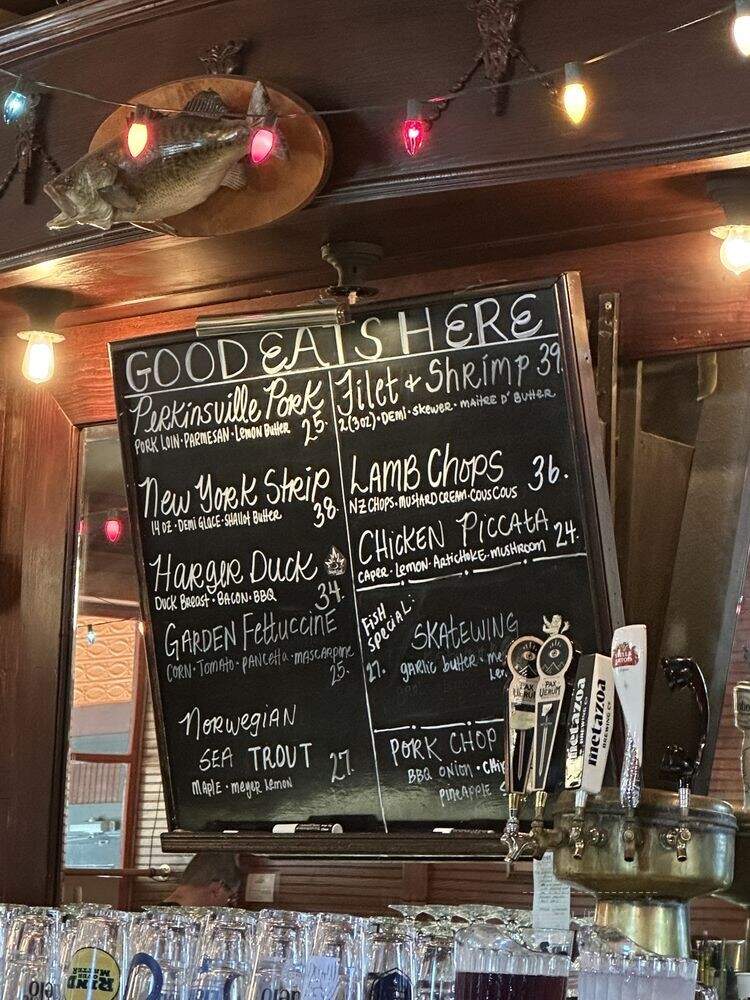 GOOD EATS HERE
Perkinsville Pork
PORK LOIN · PARMESAN · LEMON BUTTER 25.
New York Strip
14 OZ · DEMI GLACE · SHALLOT BUTTER 38.
HARGER DUCK
DUCK BREAST · BACON · BBQ 34.
GARDEN Fettuccine
CORN · TOMATO · PANCETTA · MASCARPONE
25.
NORWEGIAN
SEA TROUT 27.
MAPLE · MEYER LEMON
Filet + Shrimp 39.
2(3oz) · DEMI · SKEWER · MAITRE D' BUTTER
LAMB CHOPS 36.
NZ CHOPS · MUSTARD CREAM · COUS COUS
CHICKEN PICCATA 24.
CAPER · LEMON · ARTICHOKE · MUSHROOM
FISH
SPECIAL:
SKATEWING
27. garlic butter
PORK CHOP
BBQ ONION
PINEAPPLE
PAX
VERUM
PAX
VERUM
metazoa
BREWING CO.
metazoa
BREWING CO.
STELLA
ARTOIS